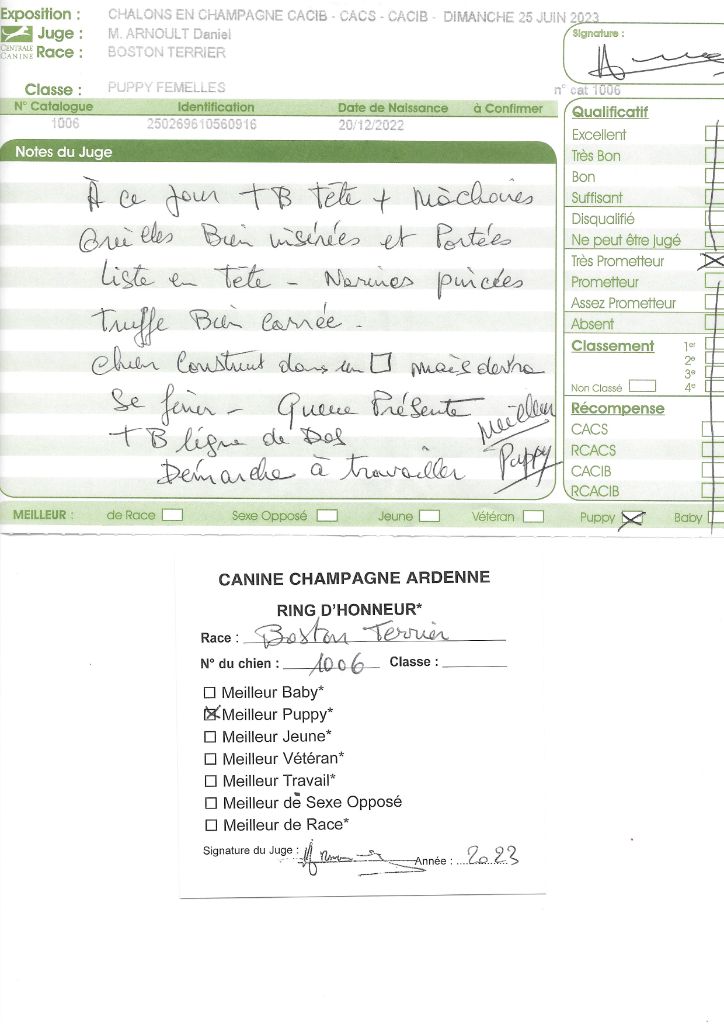 Exposition : CHALONS EN CHAMPAGNE CACIB - CACS - CACIB - DIMANCHE 25 JUIN 2023
Juge : M. ARNOULT Daniel
CENTRALE CANINE
Race : BOSTON TERRIER
Signature :
Classe : PUPPY FEMELLES
n° cat 1006
N° Catalogue Identification Date de Naissance à Confirmer
1006 250269610560916 20/12/2022
Notes du Juge
À ce jour TB Tête + Mâchoires
Oreilles Bien insérées et Portées
Liste en Tête - Narines pincées
truffe Bien carrée.
chien Construit dans un □ mais devra
Se
Queue Présente
TB ligne de Dos
Démarche à travailler
Meilleur
Puppy
Qualificatif
Excellent
Très Bon
Bon
Suffisant
Disqualifié
Ne peut être jugé
Très Prometteur
Prometteur
Assez Prometteur
Absent
Classement 1er
2e
3e
Non Classé 4e
Récompense
CACS
RCACS
CACIB
RCACIB
MEILLEUR : de Race Sexe Opposé Jeune Vétéran Puppy Baby
CANINE CHAMPAGNE ARDENNE
RING D'HONNEUR*
Race : Boston Terrier
N° du chien : 1006 Classe :
Meilleur Baby*
Meilleur Puppy*
Meilleur Jeune*
Meilleur Vétéran*
Meilleur Travail*
Meilleur de Sexe Opposé
Meilleur de Race*
Signature du Juge : Année : 2023